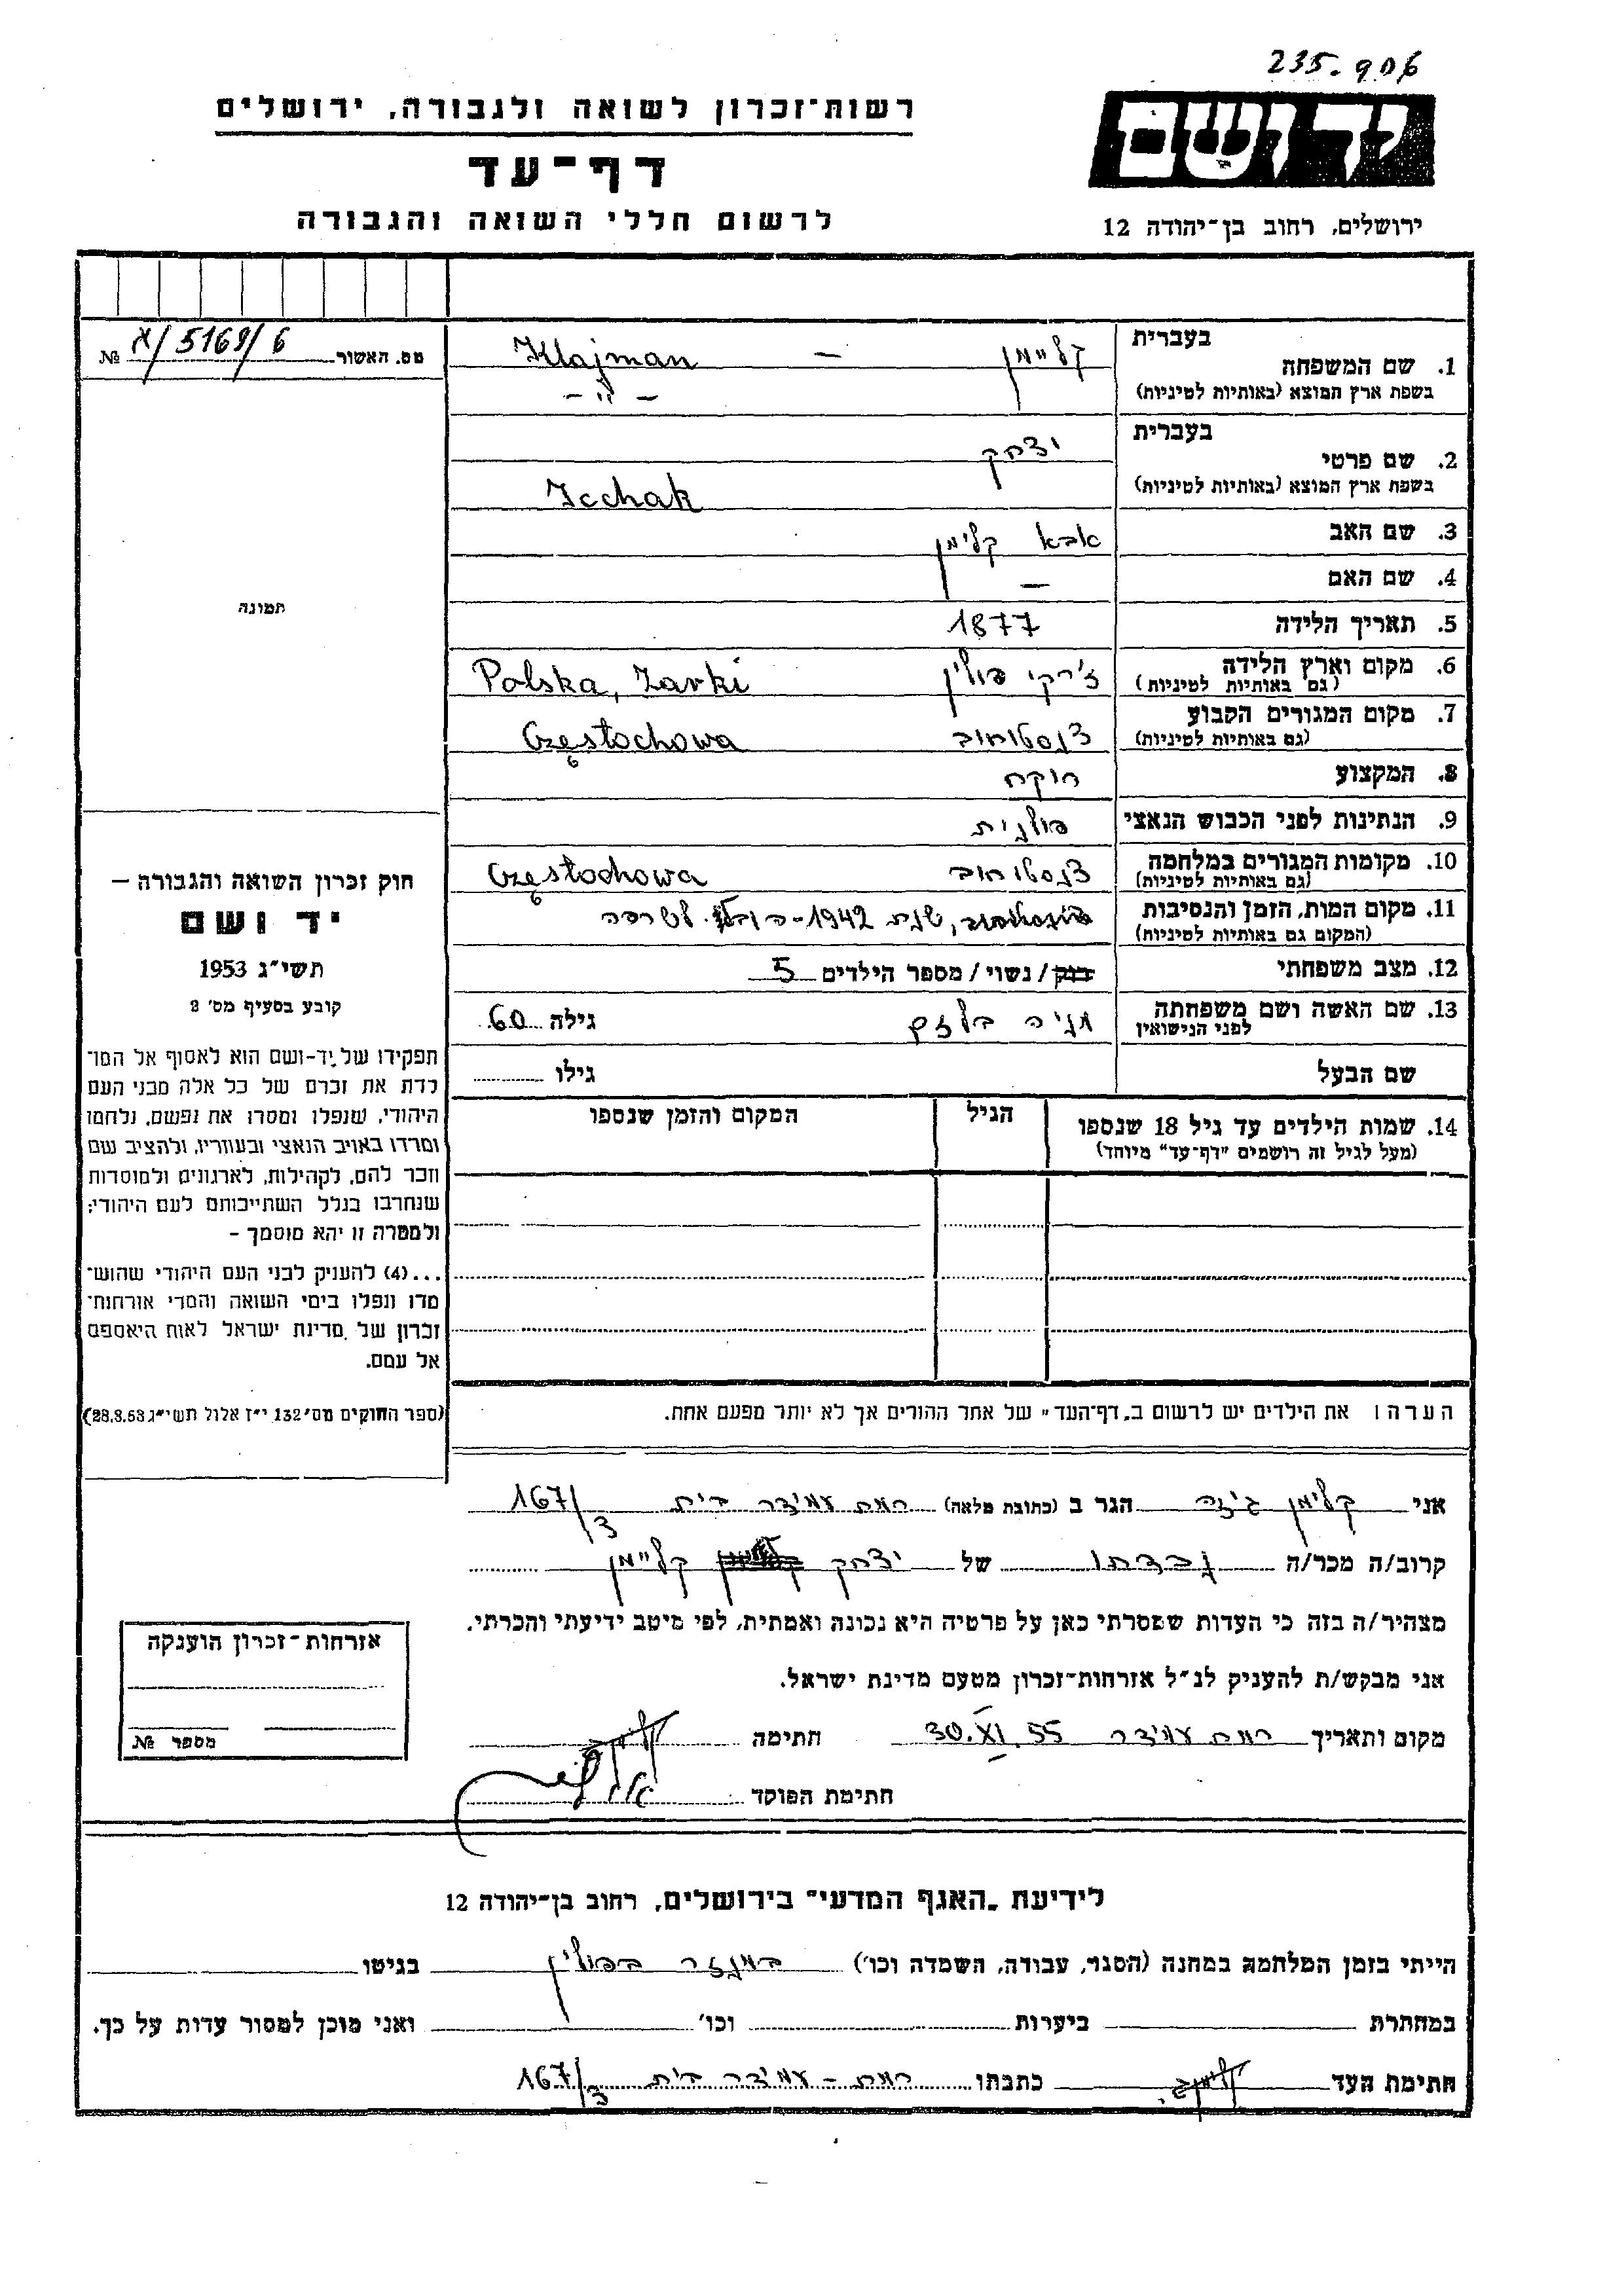 235.906
יד ושם
ירושלים, רחוב בן־יהודה 12
רשות־זכרון לשואה ולגבורה, ירושלים
דף־עד
לרשום חללי השואה והגבורה
מס. האשור א/5169/6 №
תמונה
בעברית
1. שם המשפחה קליימן — Klajman
בשפת ארץ המוצא (באותיות לטיניות) — " —
בעברית
2. שם פרטי יצחק
בשפת ארץ המוצא (באותיות לטיניות) Icchak
3. שם האב אבא קלימן
4. שם האם —
5. תאריך הלידה 1877
6. מקום וארץ הלידה ז'רקי פולין Polska, Żarki
(גם באותיות לטיניות)
7. מקום המגורים הקבוע צ'נסטוחוב Częstochowa
(גם באותיות לטיניות)
8. המקצוע רוקח
9. הנתינות לפני הכבוש הנאצי פולנית
10. מקומות המגורים במלחמה צ'נסטוחוב Częstochowa
(גם באותיות לטיניות)
11. מקום המות, הזמן והנסיבות שנת 1942 - לשרפה
(המקום גם באותיות לטיניות)
12. מצב משפחתי רוק/ נשוי/ מספר הילדים 5
13. שם האשה ושם משפחתה גילה 60
לפני הנישואין
שם הבעל גילו
14. שמות הילדים עד גיל 18 שנספו הגיל המקום והזמן שנספו
(מעל לגיל זה רושמים "דף־עד" מיוחד)
הערה: את הילדים יש לרשום ב„דף־העד" של אחד ההורים אך לא יותר מפעם אחת.
חוק זכרון השואה והגבורה —
יד ושם
תשי"ג 1953
קובע בסעיף מס' 2
תפקידו של יד-ושם הוא לאסוף אל המו־
לדת את זכרם של כל אלה מבני העם
היהודי, שנפלו ומסרו את נפשם, נלחמו
ומרדו באויב הנאצי ובעוזריו, ולהציב שם
וזכר להם, לקהילות, לארגונים ולמוסדות
שנחרבו בגלל השתייכותם לעם היהודי;
ולמטרה זו יהא מוסמך –
...(4) להעניק לבני העם היהודי שהוש־
מדו ונפלו בימי השואה והמרי אזרחות־
זכרון של מדינת ישראל לאות היאספם
אל עמם.
(ספר החוקים מס' 132, י"ז אלול תשי"ג 28.8.53)
אני קלימן גיזה הגר ב (כתובת מלאה) רמת עמידר בית 167/3
קרוב/ה מכר/ה נכדתו של יצחק קליימן
מצהיר/ה בזה כי העדות שמסרתי כאן על פרטיה היא נכונה ואמתית, לפי מיטב ידיעתי והכרתי.
אני מבקש/ת להעניק לנ"ל אזרחות־זכרון מטעם מדינת ישראל.
מקום ותאריך רמת עמידר 30.XI.55 חתימה
חתימת הפוקד
אזרחות־זכרון הוענקה
מספר №
לידיעת „האגף המדעי" בירושלים, רחוב בן־יהודה 12
הייתי בזמן המלחמה במחנה (הסגר, עבודה, השמדה וכו') במנזר בפולין בגיטו
במחתרת ביערות וכו' ואני מוכן למסור עדות על כך.
חתימת העד כתבתו רמת - עמידר בית 167/3